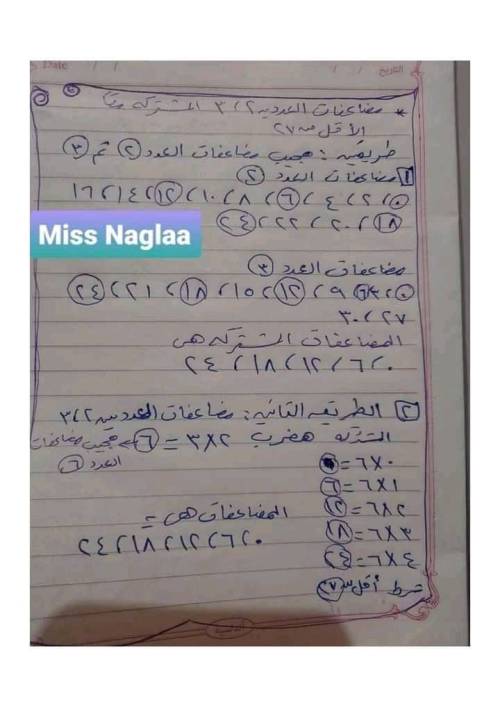 Date / /
التاريخ / /
* مضاعفات العددين ٢ ، ٣ المشتركة معًا
الأقل من ٢٧
طريقة : هجيب مضاعفات العدد ٢ ثم ٣
١ مضاعفات العدد ٢
٠ ، ٢ ، ٤ ، ٦ ، ٨ ، ١٠ ، ١٢ ، ١٤ ، ١٦
١٨ ، ٢٠ ، ٢٢ ، ٢٤
Miss Naglaa
مضاعفات العدد ٣
٠ ، ٣ ، ٦ ، ٩ ، ١٢ ، ١٥ ، ١٨ ، ٢١ ، ٢٤
٢٧ ، ٣٠
المضاعفات المشتركة هى
٠ ، ٦ ، ١٢ ، ١٨ ، ٢٤
٢ الطريقه التانيه : مضاعفات العددين ٢ ، ٣
هضرب ٢ × ٣ = ٦ هجيب مضاعفات
العدد ٦
٠ × ٦ = ٠
١ × ٦ = ٦
٢ × ٦ = ١٢
٣ × ٦ = ١٨
٤ × ٦ = ٢٤
المضاعفات هى =
٠ ، ٦ ، ١٢ ، ١٨ ، ٢٤
شرط أقل من ٢٧